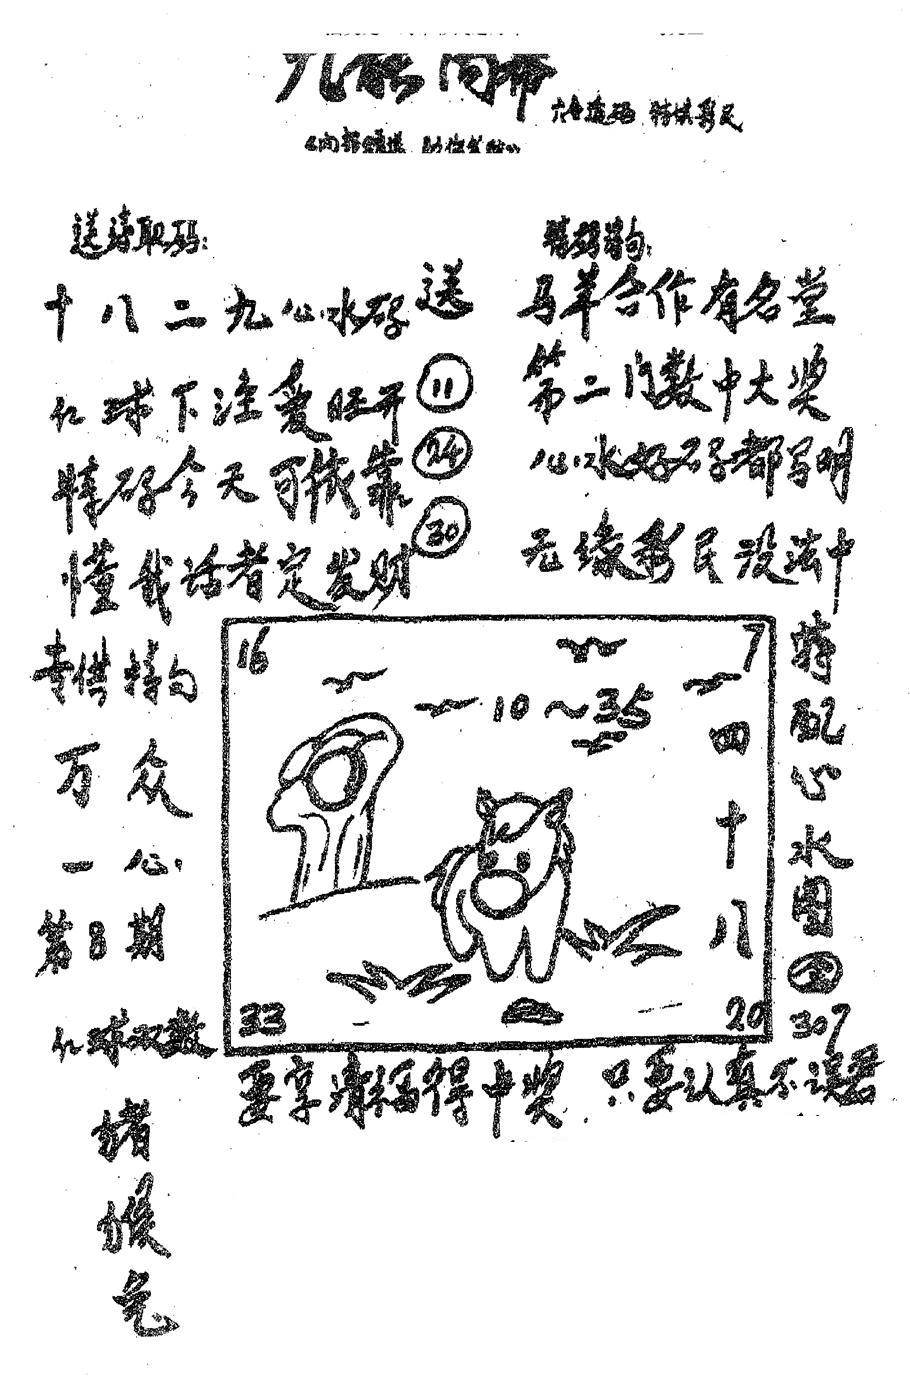 送特取码:
十八二九心水码
红球下注爱旺开
精码今天可依靠
懂我话者定发财
送
11
24
30
精码特句:
马羊合作有名堂
第二门数中大奖
心水好码都写明
无缘彩民没法中
专供特句
万众
一心
第8期
红球双数
猪猴兔
16
7
10~35
四十八
33
20
特配心水图
307
要享清福得中奖 只要认真不误君